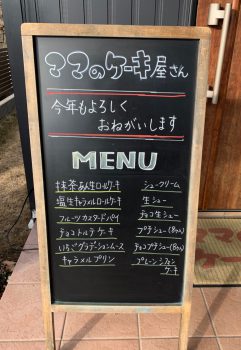 ママのケーキ屋さん
今年もよろしく
おねがいします
MENU
抹茶あん生ロールケーキ
塩生キャラメルロールケーキ
フルーツカスタードパイ
チョコトルテケーキ
いちごグラデーションムース
キャラメルプリン
シュークリーム
生シュー
チョコ生シュー
プチシュー(8ヶ入)
チョコプチシュー(8ヶ入)
プレーンシフォン
ケーキ